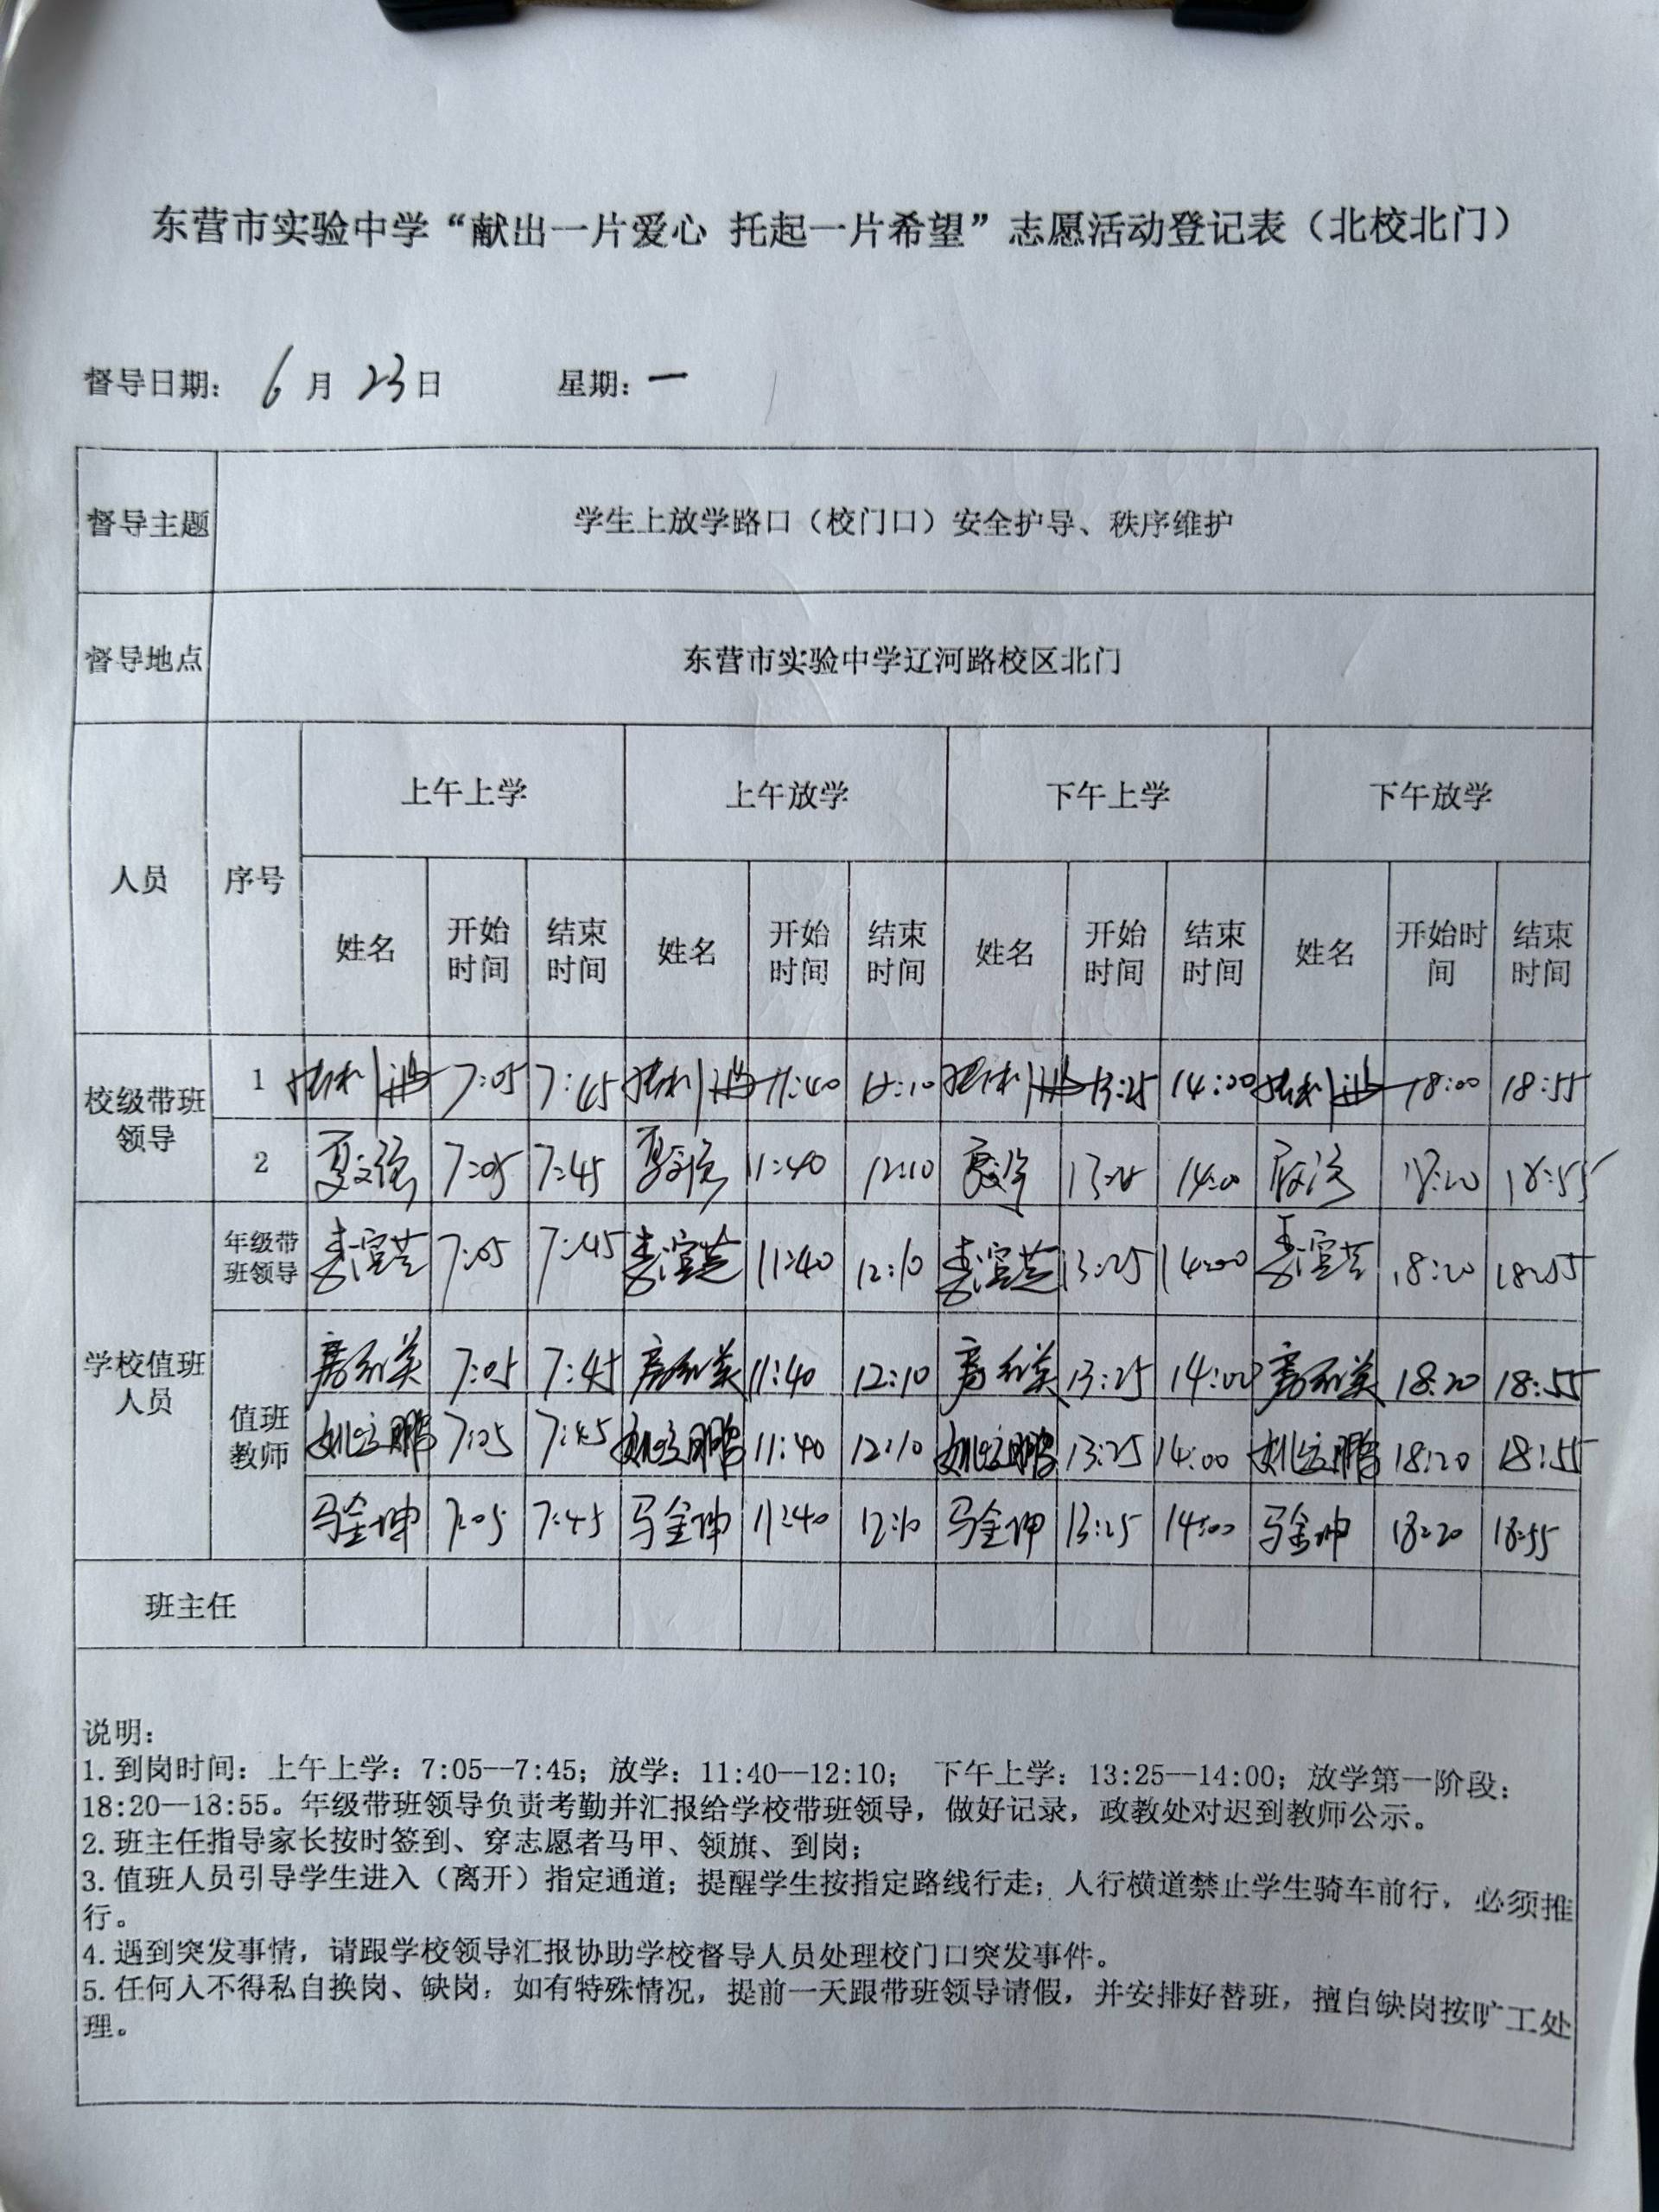 东营市实验中学“献出一片爱心 托起一片希望”志愿活动登记表（北校北门）
督导日期： 6 月 23 日 星期：一
督导主题 学生上放学路口（校门口）安全护导、秩序维护
督导地点 东营市实验中学辽河路校区北门
人员 序号 上午上学 上午放学 下午上学 下午放学
姓名 开始时间 结束时间 姓名 开始时间 结束时间 姓名 开始时间 结束时间 姓名 开始时间 结束时间
校级带班领导
1 7:05 7:45 11:40 12:10 13:25 14:00 18:00 18:55
2 夏文强 7:05 7:45 夏文强 11:40 12:10 13:25 14:00 18:20 18:55
学校值班人员
年级带班领导 7:05 7:45 11:40 12:10 13:25 14:00 18:20 18:55
值班教师
7:05 7:45 11:40 12:10 13:25 14:00 18:20 18:55
姚立鹏 7:05 7:45 姚立鹏 11:40 12:10 姚立鹏 13:25 14:00 姚立鹏 18:20 18:55
马金坤 7:05 7:45 马金坤 11:40 12:10 马金坤 13:25 14:00 马金坤 18:20 18:55
班主任
说明：
1. 到岗时间：上午上学：7:05--7:45；放学：11:40--12:10； 下午上学：13:25--14:00；放学第一阶段：
18:20--18:55。年级带班领导负责考勤并汇报给学校带班领导，做好记录，政教处对迟到教师公示。
2. 班主任指导家长按时签到、穿志愿者马甲、领旗、到岗；
3. 值班人员引导学生进入（离开）指定通道；提醒学生按指定路线行走；人行横道禁止学生骑车前行，必须推
行。
4. 遇到突发事情，请跟学校领导汇报协助学校督导人员处理校门口突发事件。
5. 任何人不得私自换岗、缺岗，如有特殊情况，提前一天跟带班领导请假，并安排好替班，擅自缺岗按旷工处
理。